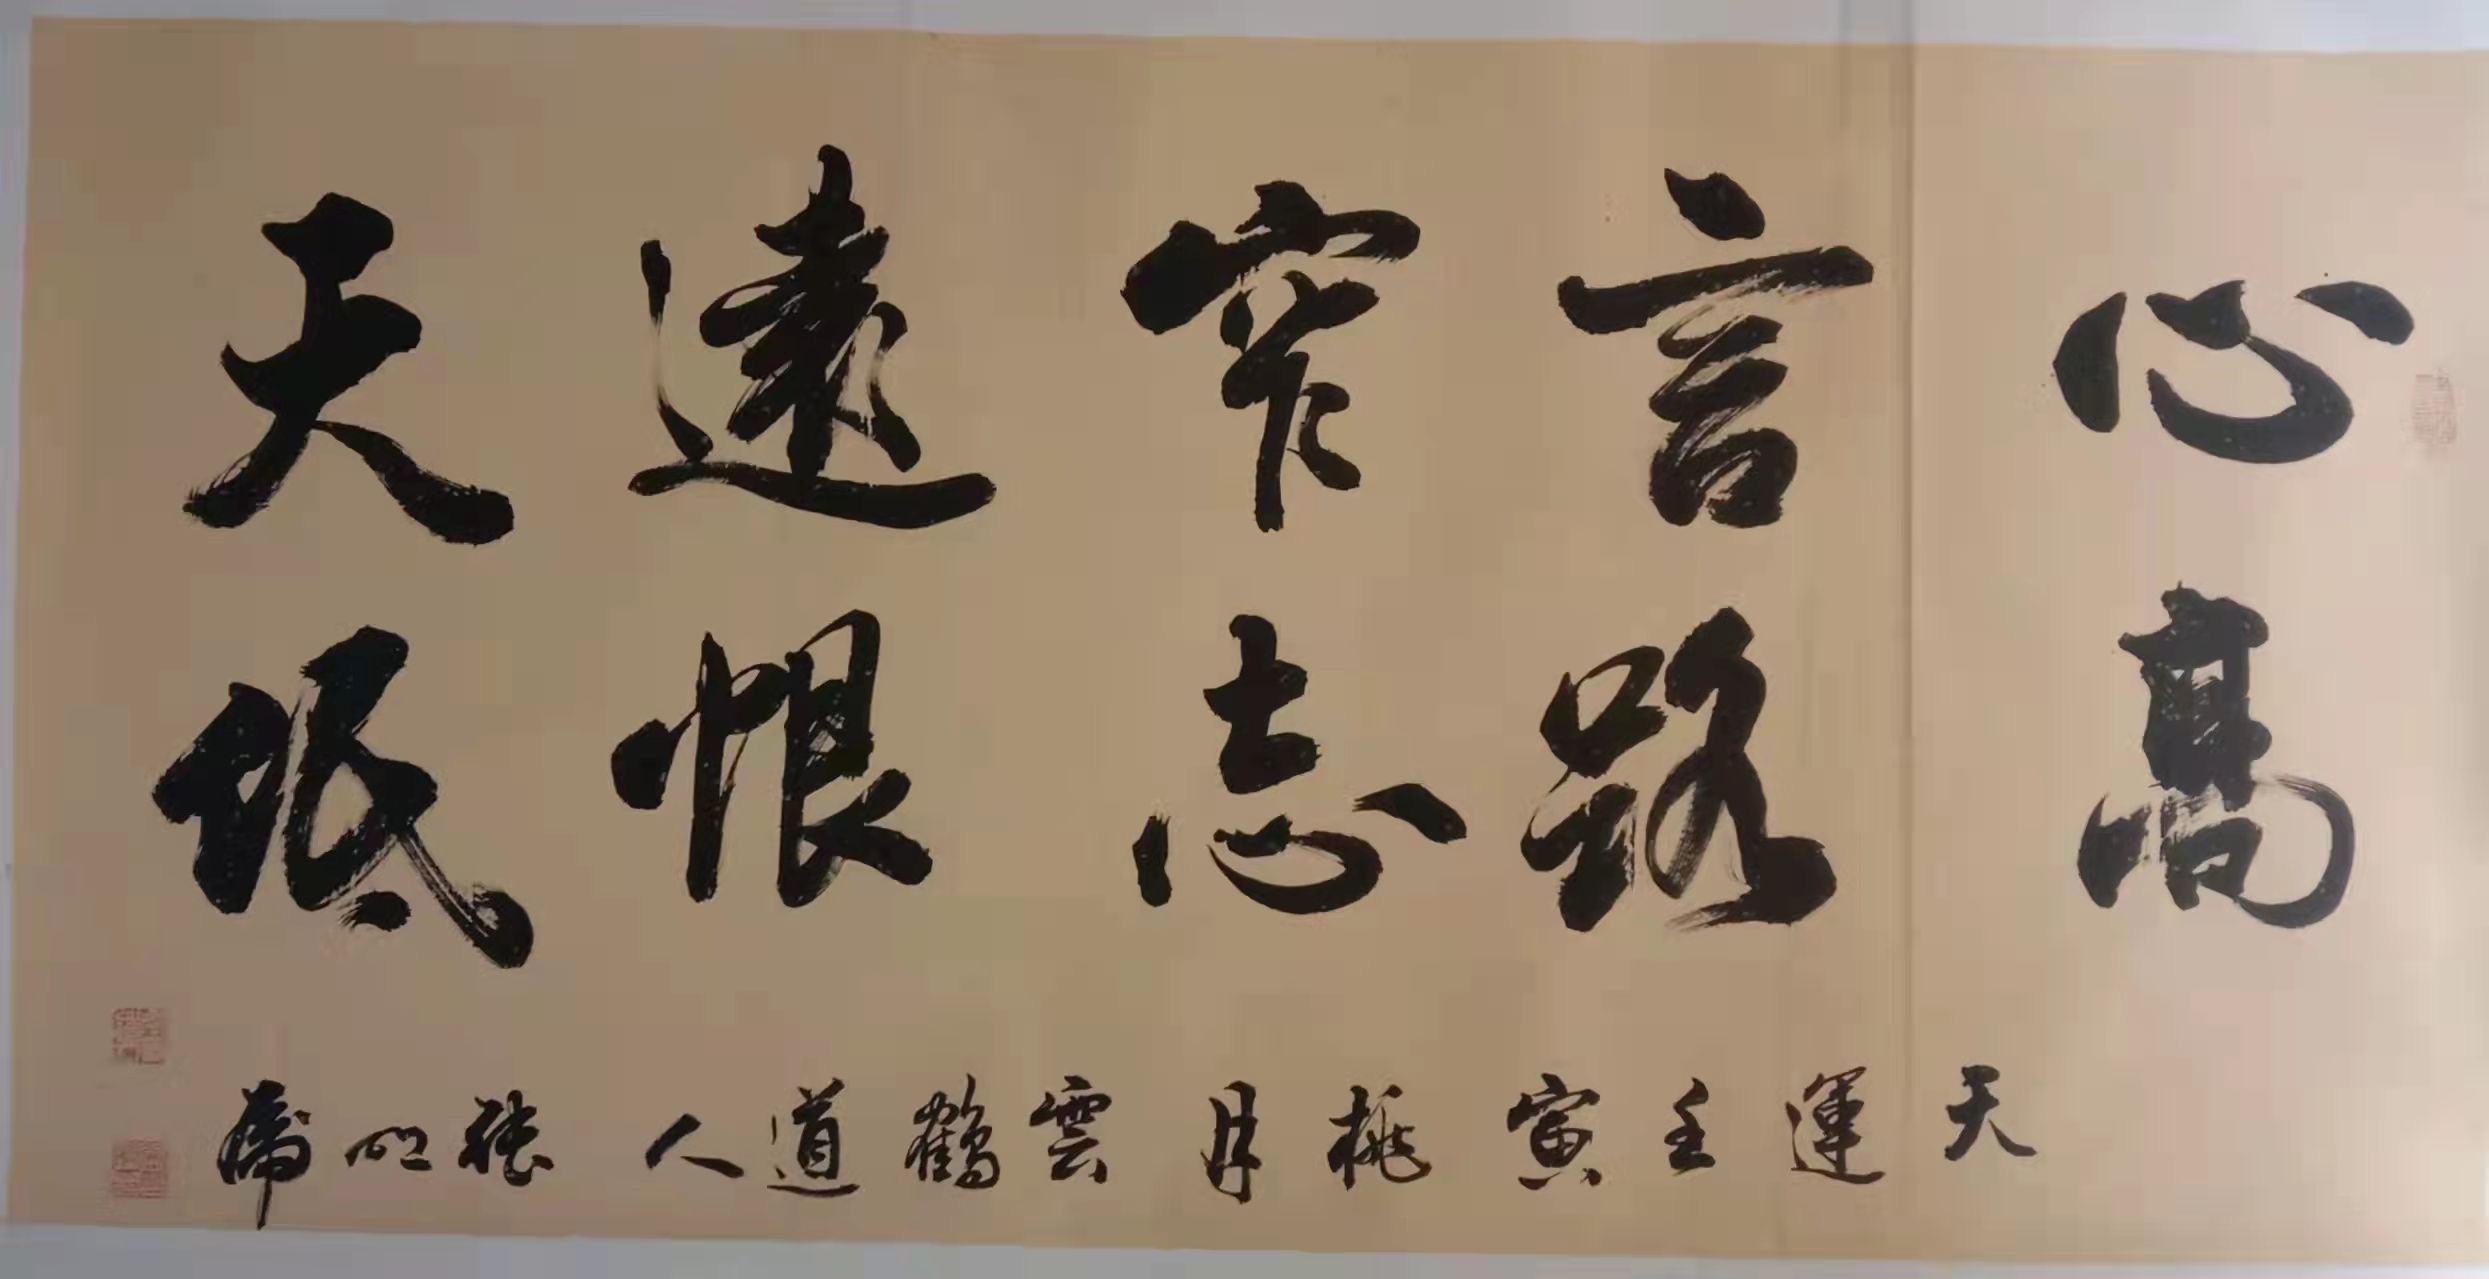 心高
言路
窄志
遠恨
天低
天運壬寅桃月 雲鶴道人 張明